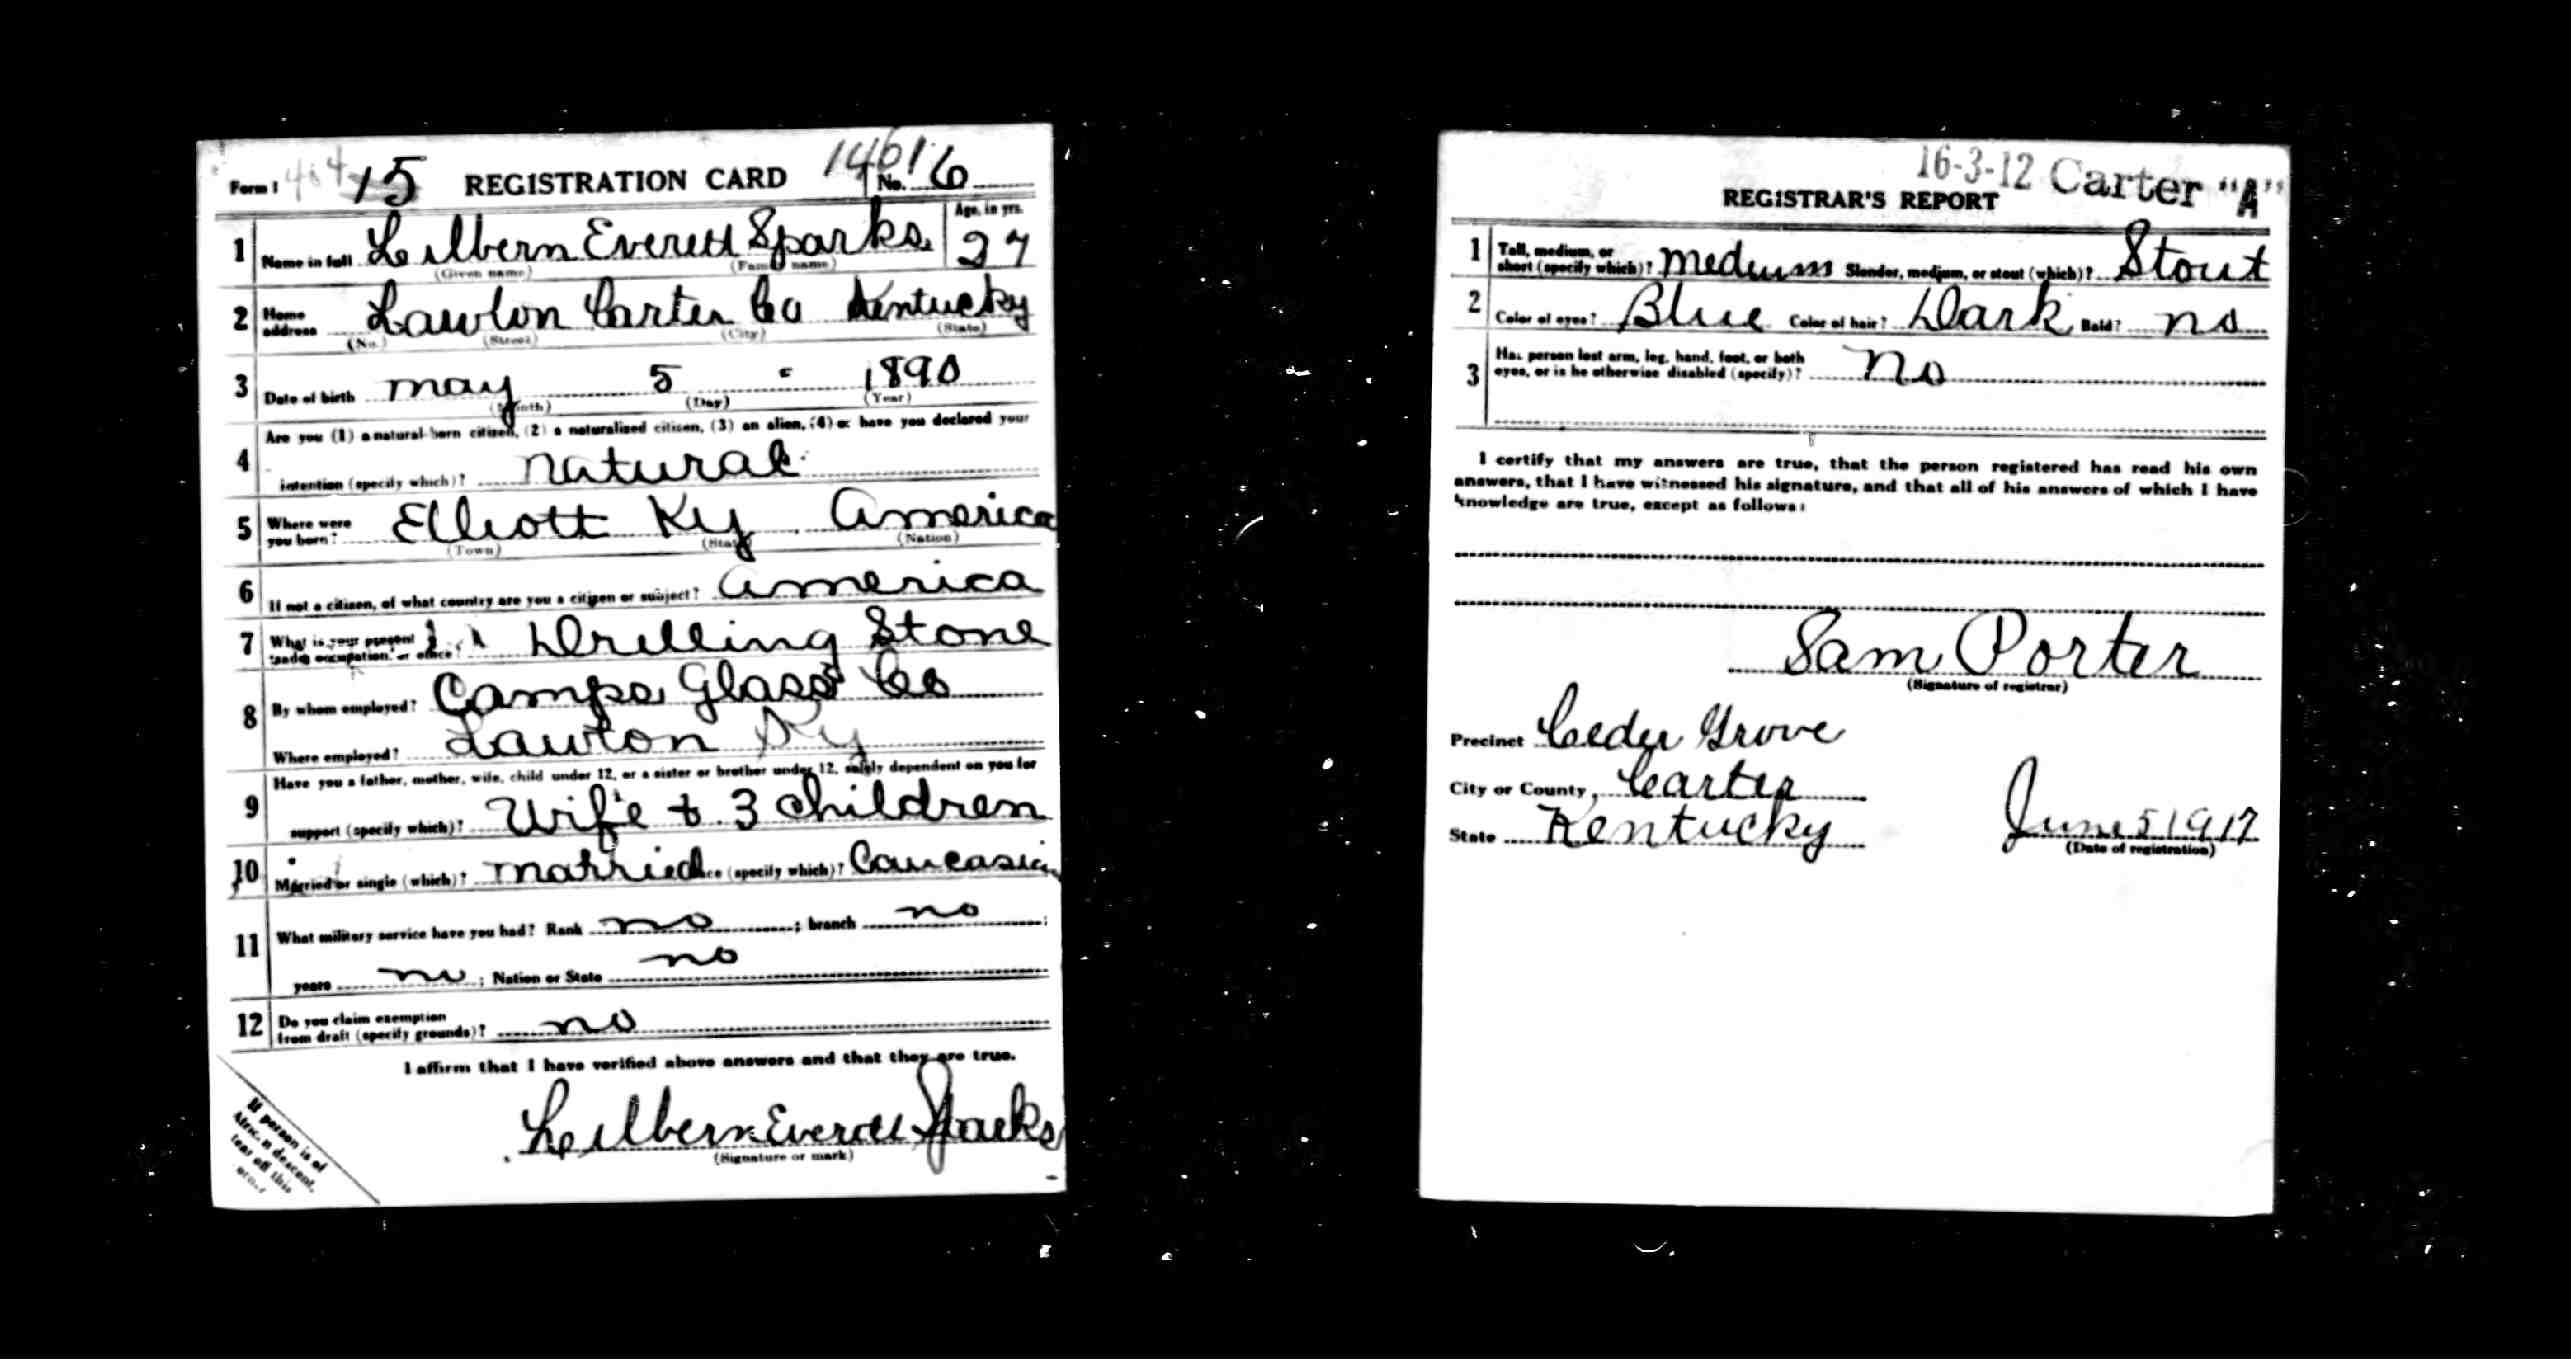 Form 1 15 REGISTRATION CARD No. 6
1 Name in full Leilbern Everett Sparks Age, in yrs. 27
(Given name) (Family name)
2 Home address Lawton Carter Co Kentucky
(No.) (Street) (City) (State)
3 Date of birth may 5 1890
(Month) (Day) (Year)
4 Are you (1) a natural-born citizen, (2) a naturalized citizen, (3) an alien, (4) or have you declared your
intention (specify which)? natural
5 Where were you born? Elliott Ky America
(Town) (State) (Nation)
6 If not a citizen, of what country are you a citizen or subject? America
7 What is your present trade, occupation, or office? Drilling Stone
8 By whom employed? Camps Glass Co
Where employed? Lawton Ky
9 Have you a father, mother, wife, child under 12, or a sister or brother under 12, solely dependent on you for
support (specify which)? Wife + 3 children
10 Married or single (which)? married Race (specify which)? Caucasian
11 What military service have you had? Rank no ; branch no ;
years no ; Nation or State no
12 Do you claim exemption from draft (specify grounds)? no
I affirm that I have verified above answers and that they are true.
Leilbern Everett Sparks
(Signature or mark)
If person is of
African descent,
tear off this
corner
16-3-12 Carter "A"
REGISTRAR'S REPORT
1 Tall, medium, or short (specify which)? medium Slender, medium, or stout (which)? Stout
2 Color of eyes? Blue Color of hair? Dark Bald? no
3 Has person lost arm, leg, hand, foot, or both
eyes, or is he otherwise disabled (specify)? No
I certify that my answers are true, that the person registered has read his own
answers, that I have witnessed his signature, and that all of his answers of which I have
knowledge are true, except as follows:
Sam Porter
(Signature of registrar)
Precinct Ceder Grove
City or County Carter
State Kentucky June 5 1917
(Date of registration)